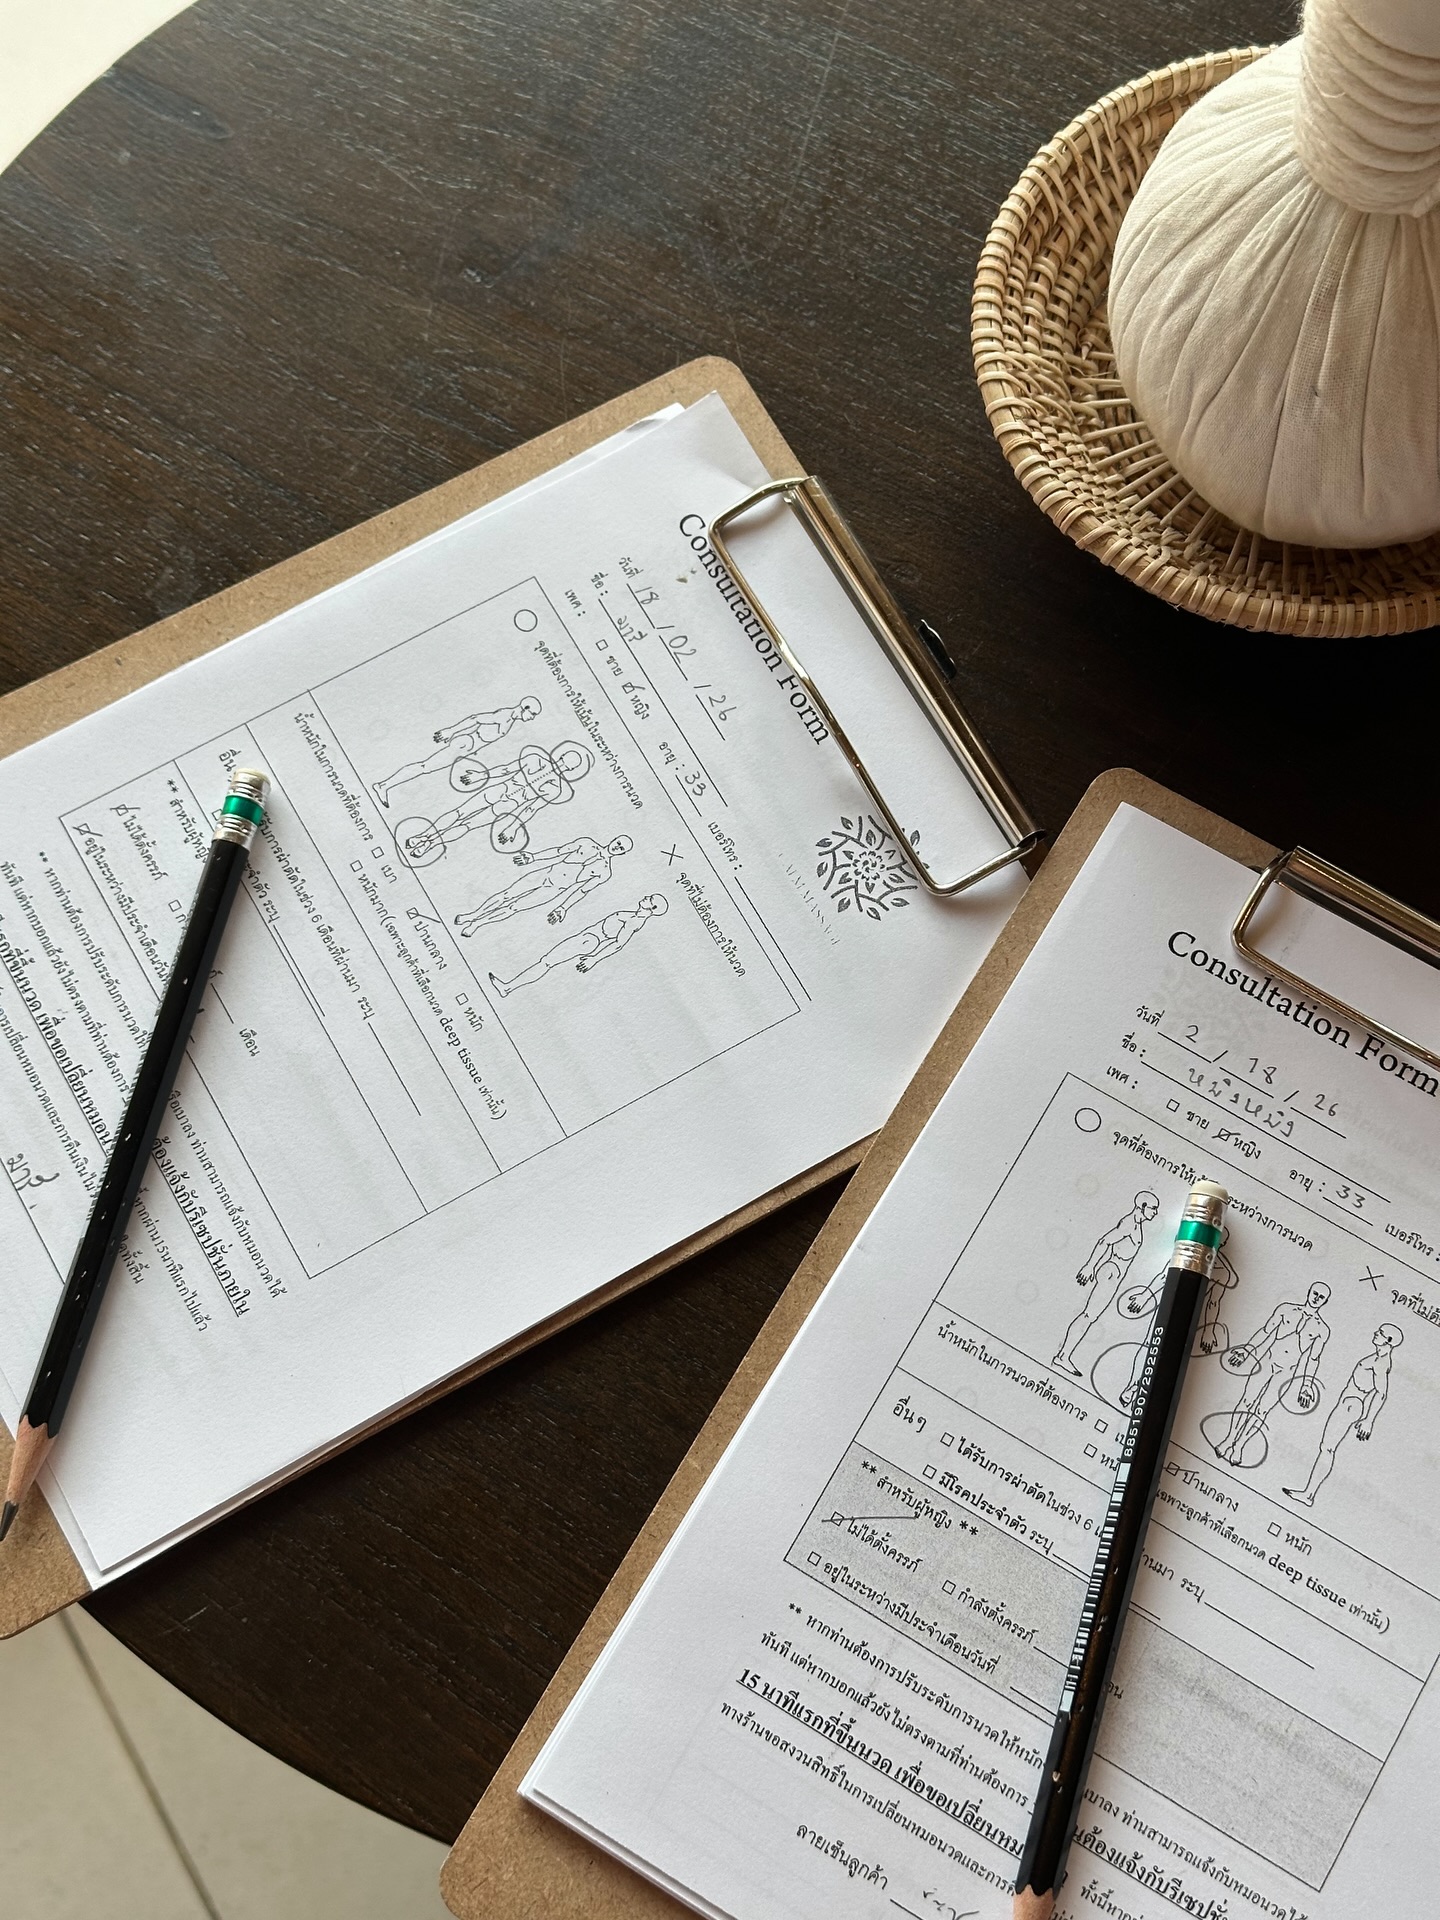 Consultation Form
วันที่ 18 / 02 / 26
ชื่อ : มารี
เพศ : ชาย หญิง อายุ : 33 เบอร์โทร :
จุดที่ต้องการให้เน้นในระหว่างการนวด × จุดที่ไม่ต้องการให้นวด
น้ำหนักในการนวดที่ต้องการ เบา ปานกลาง หนัก
หนักมาก (เฉพาะลูกค้าที่เลือกนวด deep tissue เท่านั้น)
รับการผ่าตัดในช่วง 6 เดือนที่ผ่านมา ระบุ
ระบุ
** สำหรับผู้หญิง
ไม่ได้ตั้งครรภ์ เดือน
อยู่ในระหว่างมีประจำเดือนวันที่
** หากท่านต้องการปรับระดับการนวดให้ หรือเบาลง ท่านสามารถแจ้งกับหมอนวดได้
ทันที แต่หากบอกแล้วยังไม่ตรงตามที่ท่านต้องการ ต้องแจ้งกับรีเซปชั่นภายใน
แรกที่ขึ้นนวด เพื่อขอเปลี่ยนหมอน
Consultation Form
วันที่ 2 / 18 / 26
ชื่อ : หมิงหมิง
เพศ : ชาย หญิง อายุ : 33 เบอร์โทร :
จุดที่ต้องการให้ ระหว่างการนวด × จุดที่ไม่ต้
น้ำหนักในการนวดที่ต้องการ ปานกลาง หนัก
เฉพาะลูกค้าที่เลือกนวด deep tissue เท่านั้น)
อื่นๆ ได้รับการผ่าตัดในช่วง 6 ผ่านมา ระบุ
มีโรคประจำตัว ระบุ
** สำหรับผู้หญิง **
ไม่ได้ตั้งครรภ์ กำลังตั้งครรภ์
อยู่ในระหว่างมีประจำเดือนวันที่
** หากท่านต้องการปรับระดับการนวดให้หนัก เบาลง ท่านสามารถแจ้งกับหมอนวดได้
ทันที แต่หากบอกแล้วยังไม่ตรงตามที่ท่านต้องการ ต้องแจ้งกับรีเซปชั่
15 นาทีแรกที่ขึ้นนวด เพื่อขอเปลี่ยนหม
ทางร้านขอสงวนสิทธิ์ในการเปลี่ยนหมอนวดและการ
ลายเซ็นลูกค้า
8851907292553